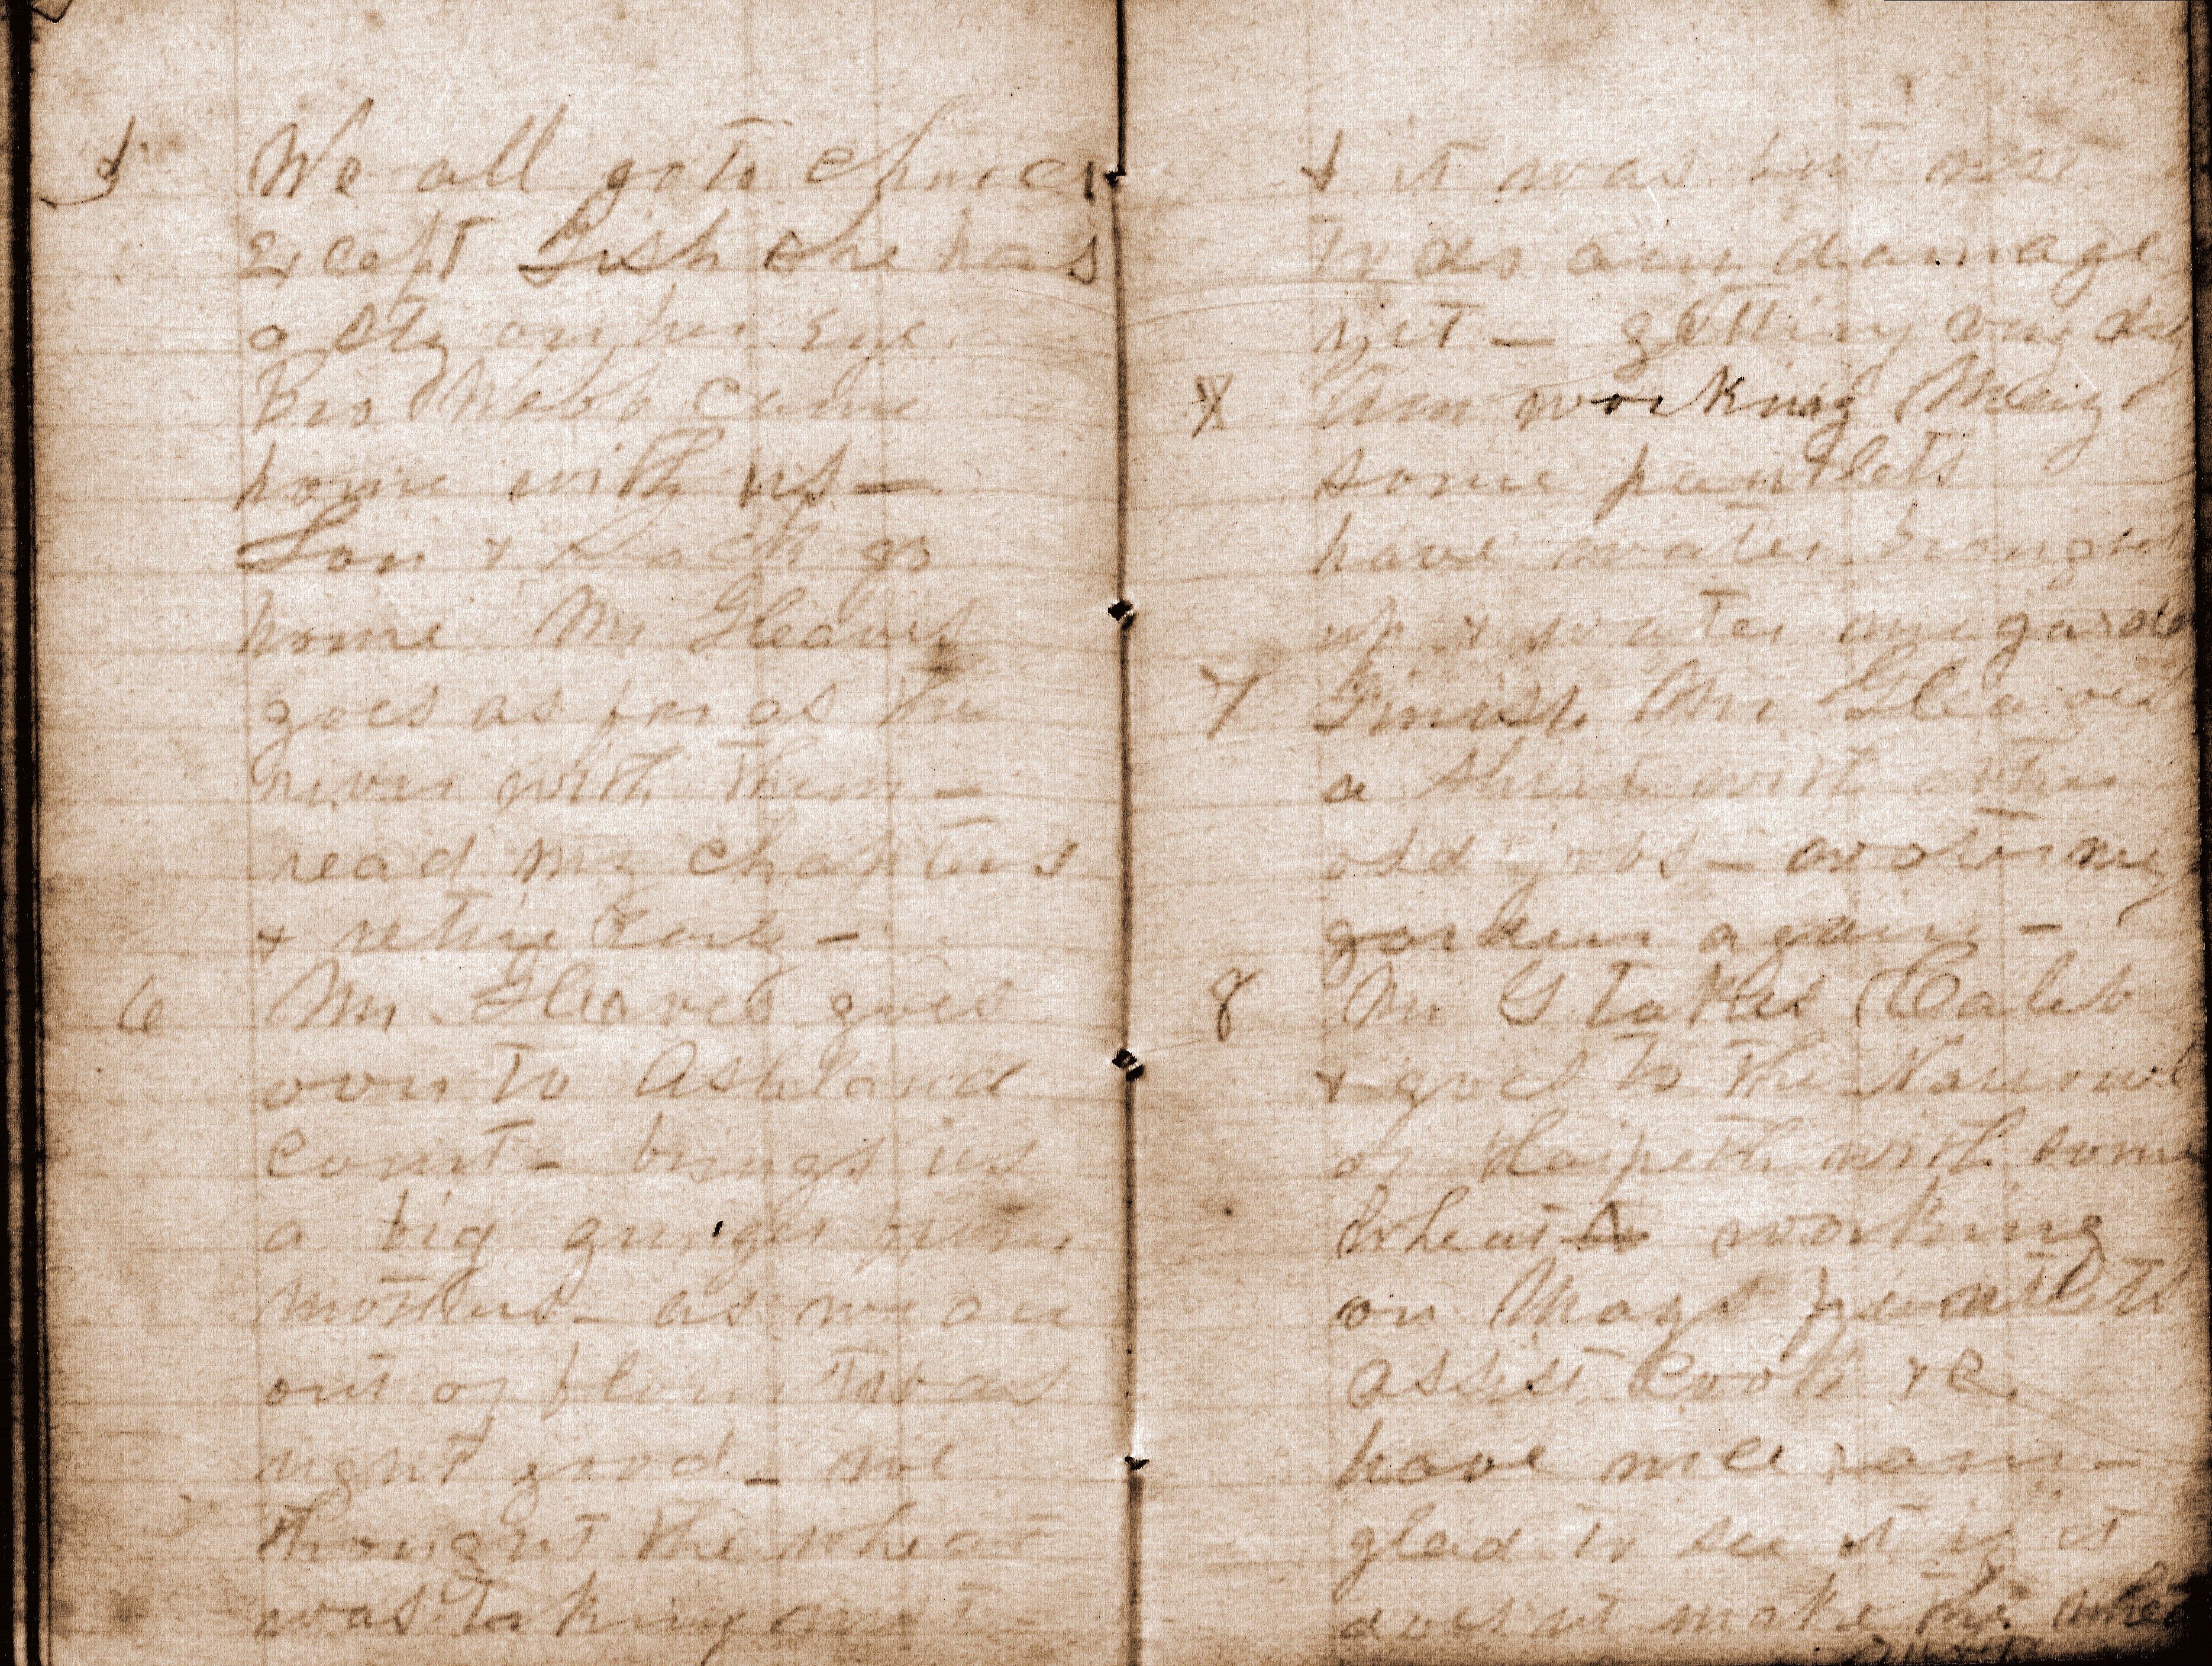 5 We all go to church
Except Tish she has
a sty on her Eye
Bro Webb came
home with us —
Son & Zack go
home Mr Gleaves
goes as far as the
river with them —
read my chapters
& retire Early —
6 Mr. Gleaves goes
over to Ashland
court — brings us
a big ginger
mothers — as we are
out of flour it was
right good — we
thought the wheat
was taking rust
& it was but not
to do any damage
yet — getting very dry
Am working Mag
some pantlets
have water brought
up & water my garden
7 Finish Mr Gleaves
a shirt with other
old jobs — water my
garden again —
8 Mr G takes Caleb
& goes to the Narrows
of Harpeth with some
wheat working
on Mags pantlets
assist cook &c.
have nice rain —
glad to see it if it
doesnt make the wheat